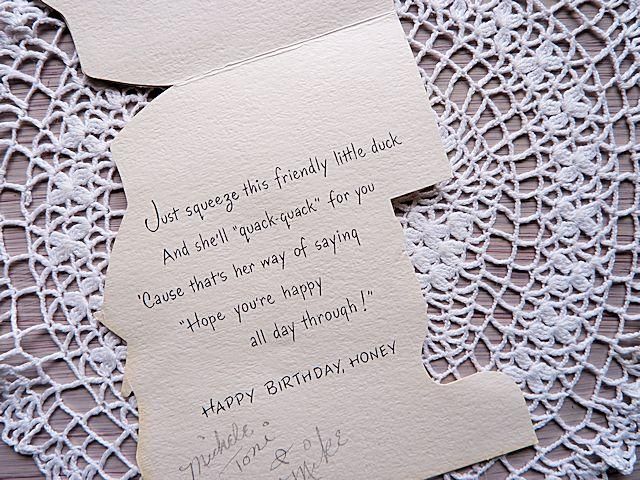 Just squeeze this friendly little duck
And she'll "quack-quack" for you
'Cause that's her way of saying
"Hope you're happy
all day through!"
HAPPY BIRTHDAY, HONEY
Michele
Toni
& Mike